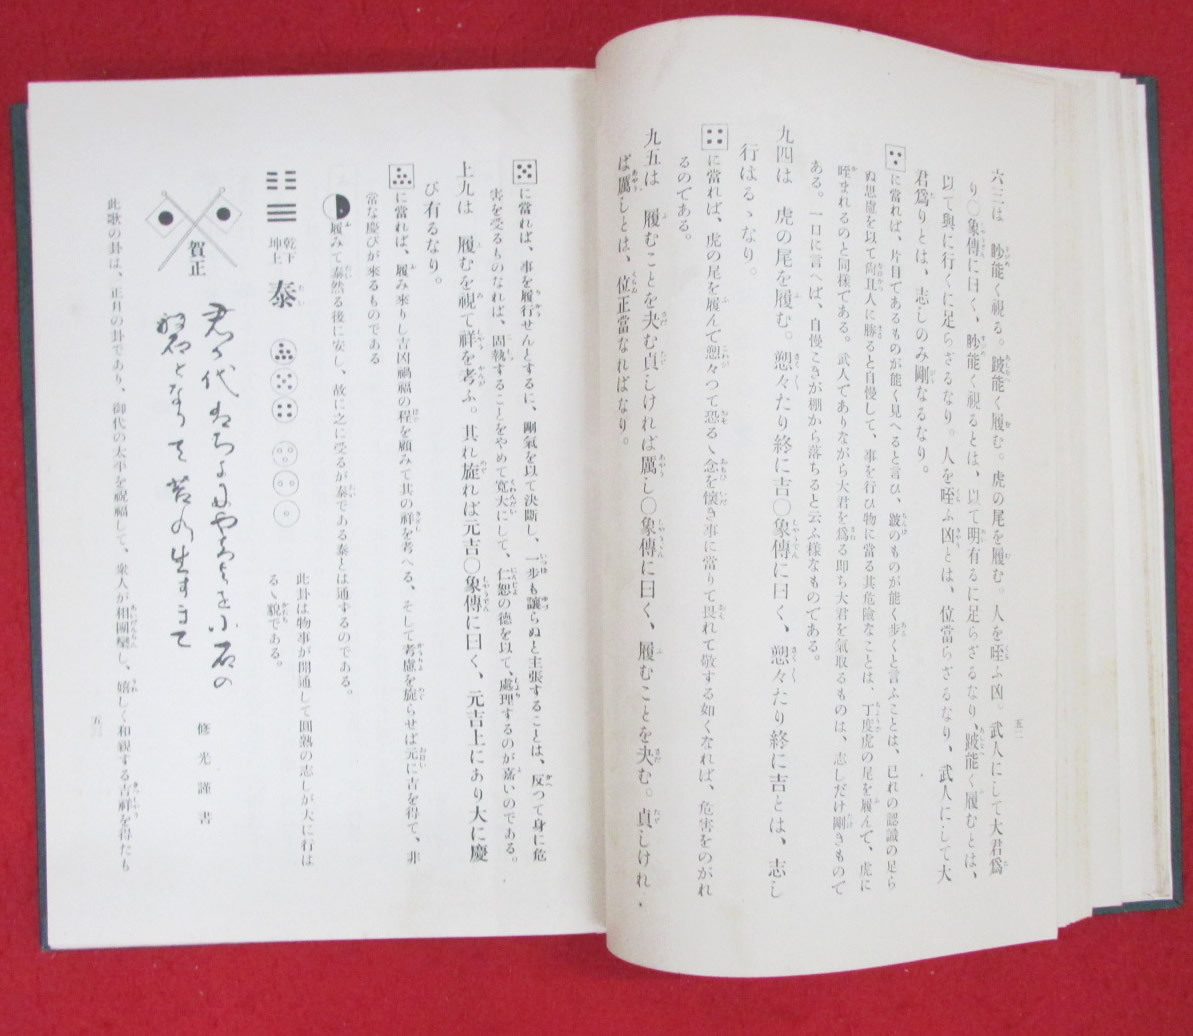 六三は 眇能く視る。跛能く履む。虎の尾を履む。人を咥ふ凶。武人にして大君爲
り〇象傳に曰く、眇能く視るとは、以て明有るに足らざるなり、跛能く履むとは、
以て與に行くに足らざるなり。人を咥ふ凶とは、位當らざるなり、武人にして大
君爲りとは、志しのみ剛なるなり。
に當れば、片目であるものが能く見へると言ひ、跛のものが能く歩くと言ふことは、已れの認識の足ら
ぬ思慮を以て尙且人に勝ると自慢して、事を行ひ物に當る其危險なことは、丁度虎の尾を履んで、虎に
咥まれるのと同樣である。武人でありながら大君を爲る即ち大君を氣取るものは、志しだけ剛きもので
ある。一口に言へば、自慢こきが棚から落ちると云ふ樣なものである。
九四は 虎の尾を履む。愬々たり終に吉〇象傳に曰く、愬々たり終に吉とは、志し
行はるゝなり。
に當れば、虎の尾を履んで愬々つて恐るゝ念を懷き事に當りて畏れて敬する如くなれば、危害をのがれ
るのである。
九五は 履むことを夬む貞しければ厲し〇象傳に曰く、履むことを夬む。貞しけれ
ば厲しとは、位正當なればなり。
五二
に當れば、事を履行せんとするに、剛氣を以て決斷し、一步も讓らぬと主張することは、反つて身に危
害を受るものなれば、固執することをやめて寬大にして、仁恕の德を以て、處理するのが嘉いのである。
上九は 履むを視て祥を考ふ。其れ旋れば元吉〇象傳に曰く、元吉上にあり大に慶
び有るなり。
に當れば、履み來りし吉凶禍福の程を顧みて其の祥を考へる、そして考慮を旋らせば元に吉を得て、非
常な慶びが來るものである
履みて泰然る後に安し、故に之に受るが泰である泰とは通するのである。
乾下
坤上
泰
此卦は物事が開通して圓熟の志しが大に行は
るゝ貌である。
賀正
君が代はちよにやちよをさゞれ石の
巖となりて苔の生すまて
修光謹書
此歌の卦は、正月の卦であり、御代の太平を祝福して、衆人が相團欒し、嬉しく和親する吉祥を得たも